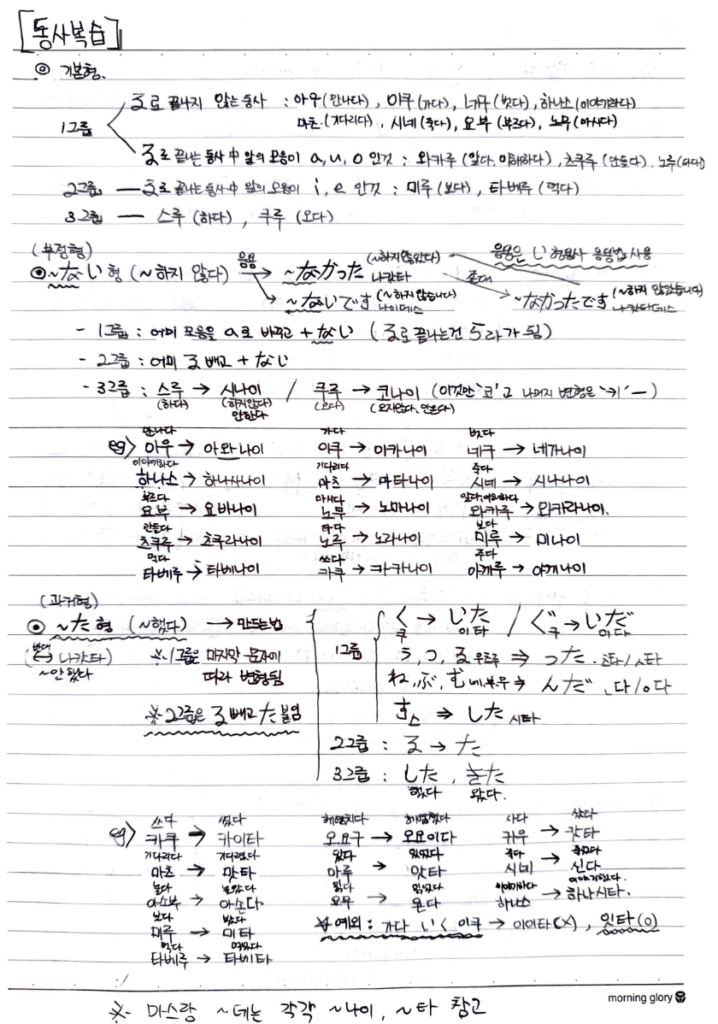 [동사복습]
◎ 기본형.
1그룹
る로 끝나지 않는 동사 : 아우(만나다), 이쿠(가다), 네구(벗다), 하나스(이야기하다)
마츠(기다리다), 시네(죽다), 요부(부르다), 노무(마시다)
る로 끝나는 동사 中 앞의 모음이 a, u, o 인것 : 와카루(알다.이해하다), 츠쿠루(만들다). 노루(타다)
2그룹 — る로 끝나는 동사 中 앞의 모음이 i, e 인것 : 미루(보다), 타베루(먹다)
3그룹 — 스루(하다), 쿠루(오다)
(부정형)
◎~ない형 (~하지 않다) 응용 → ~なかった (~하지않았다) 나캇타
응용은 い형용사 응용법 사용
→ ~ないです (~하지않습니다) 나이데스
존대 ~なかったです (~하지 않았습니다) 나캇타데스
- 1그룹 : 어미 모음을 a로 바꾸고 + ない (る로 끝나는건 ら가 됨)
- 2그룹 : 어미 る 빼고 + ない
- 3그룹 : 스루 → 시나이 / 쿠루 → 코나이 (이것만 '코'고 나머지 변형은 '키'ー)
(하다) (하지않다) 안한다 (오다) (오지않다. 안온다)
만나다 가다 벗다
eg> 아우 → 아와나이 이쿠 → 이카나이 네구 → 네가나이
이야기하다 기다리다 죽다
하나스 → 하나사나이 마츠 → 마타나이 시네 → 시나나이
부르다 마시다 알다,이해하다
요부 → 요바나이 노무 → 노마나이 와카루 → 와카라나이.
만들다 타다 보다
츠쿠루 → 츠쿠라나이 노루 → 노라나이 미루 → 미나이
먹다 쓰다 주다
타베루 → 타베나이 카쿠 → 카카나이 아게루 → 아게나이
(과거형)
◎ ~た형 (~했다) → 만드는법
(반대 ↔ 나캇타) ~안했다
※1그룹은 마지막 문자에 따라 변형됨
※2그룹은 る 빼고 た 붙임
1그룹
く → いた / ぐ → いだ
쿠 이타 구 이다
う, つ, る 우츠루 ⇒ った. ㅅ타/ㅆ타
ね, ぶ, む 네,부,무 ⇒ んだ ㄴ다/ㅇ다
す 스 ⇒ した 시타
2그룹 : る → た
3그룹 : した, きた
했다 왔다.
쓰다 썼다 헤엄치다 헤엄쳤다 사다 샀다
eg> 카쿠 → 카이타 오요구 → 오요이다 카우 → 캇타
기다리다 기다렸다 있다 있었다 죽다 죽었다
마츠 → 맛타 아루 → 앗타 시네 → 신다
놀다 놀았다 읽다 읽었다 이야기하다 이야기했다.
아소부 → 아손다 요무 → 욘다 하나스 → 하나시타.
보다 봤다
미루 → 미타
※ 예외 : 가다 いく 이쿠 → 이이타(X), 잇타(O)
먹다 먹었다
타베루 → 타베타
morning glory
※ 마스랑 ~테는 각각 ~나이, ~타 참고